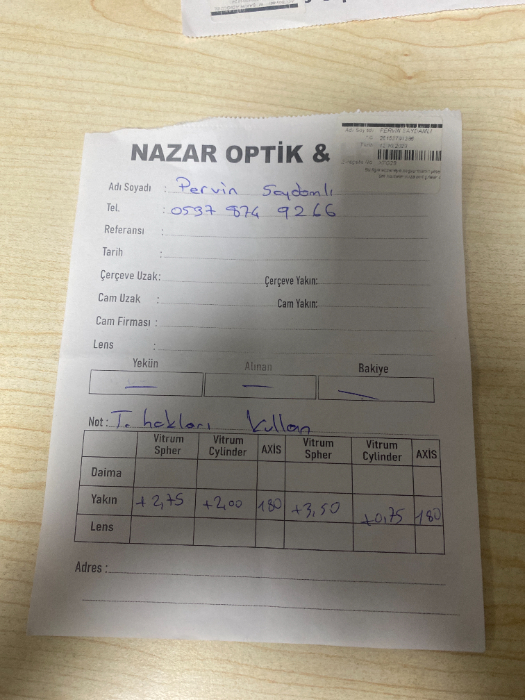 NAZAR OPTİK &
Adı Soyadı : Pervin Saydamlı
Tel. : 0537 874 9266
Referansı :
Tarih :
Çerçeve Uzak: Çerçeve Yakın:
Cam Uzak : Cam Yakın:
Cam Firması :
Lens :
Yekün Alınan Bakiye
— — —
Not: T. hakları kullan
Vitrum Spher Vitrum Cylinder AXİS Vitrum Spher Vitrum Cylinder AXİS
Daima
Yakın +2,75 +2,00 180 +3,50 +0,75 180
Lens
Adres :